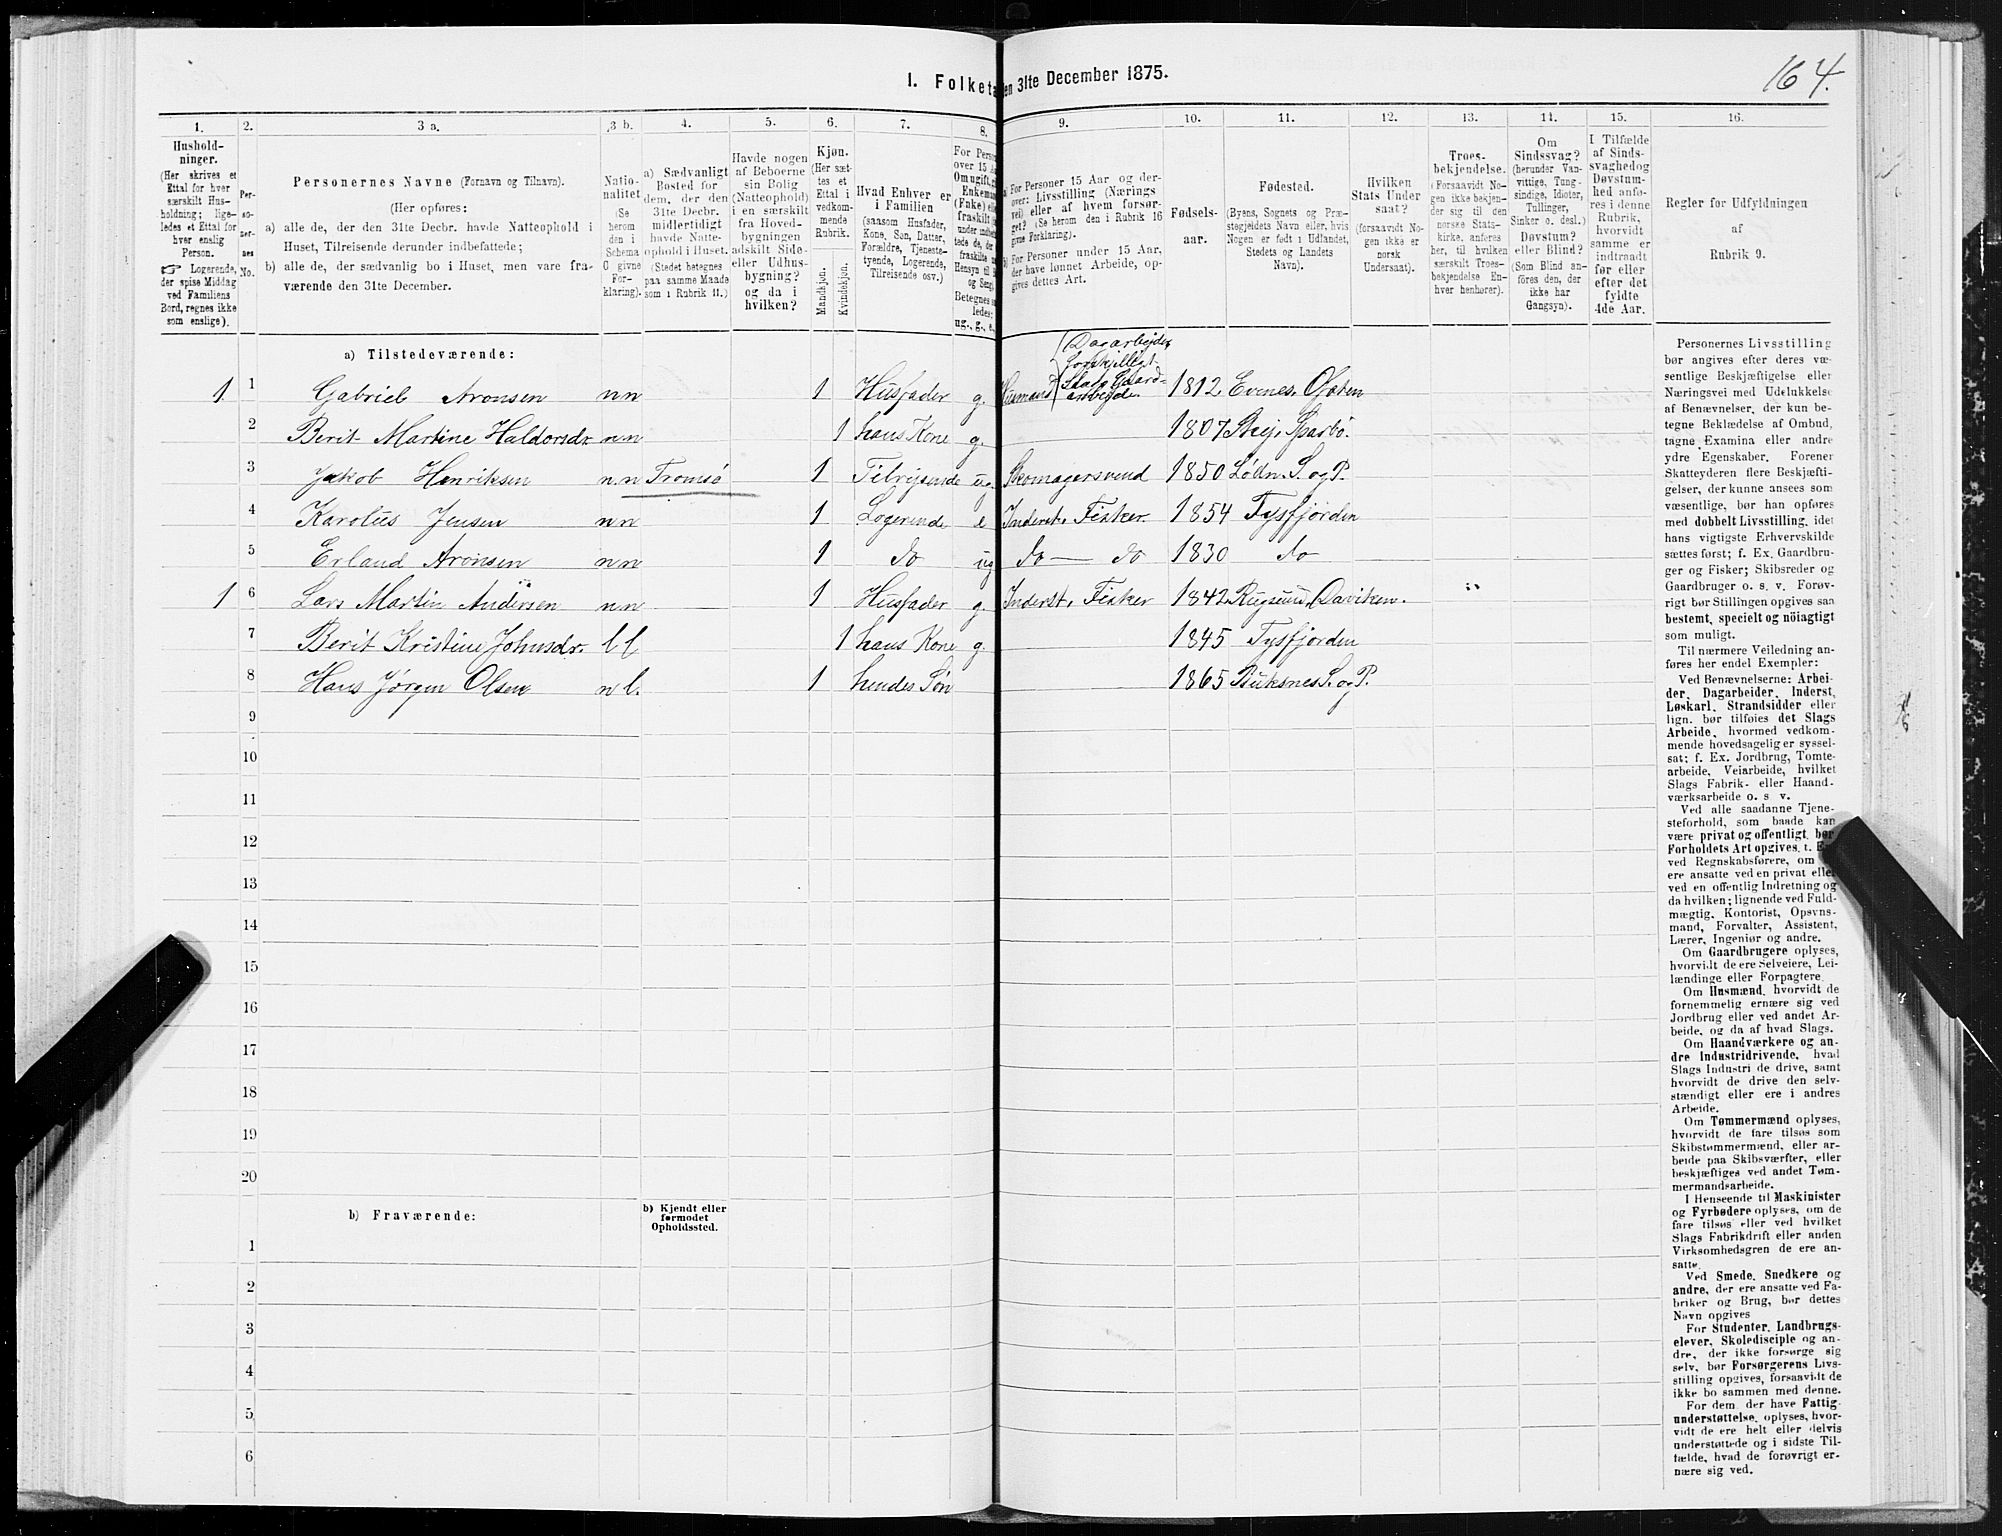 I. Folketa en 31te December 1875.
164.
1.
2.
3 a.
3 b.
4.
5.
6.
7.
8.
9.
10.
11.
12.
13.
14.
15.
16.
Hushold-
ninger.
(Her skrives et
Ettal for hver
særskilt Hus-
holdning; lige-
ledes et Ettal for
hver enslig
Person.
☞ Logerende,
der spise Middag
ved Familiens
Bord, regnes ikke
som enslige).
Per-
so-
ner-
nes
No.
Personernes Navne (Fornavn og Tilnavn).
(Her opføres:
a) alle de, der den 31te Decbr. havde Natteophold i
Huset, Tilreisende derunder indbefattede;
b) alle de, der sædvanlig bo i Huset, men vare fra-
værende den 31te December.
Natio-
nalitet.
(Se
herom
den i
Schema
G givne
For-
klaring).
a) Sædvanligt
Bosted for
dem, der den
31te Decbr.
midlertidigt
havde Natte-
ophold i Huset.
(Stedet betegnes
paa samme Maade
som i Rubrik 11.)
Havde nogen
af Beboerne
sin Bolig
(Natteophold)
i en særskilt
fra Hoved-
bygningen
adskilt Side-
eller Udhus-
bygning?
og da i
hvilken?
Kjøn.
(Her sæt-
tes et
Ettal i
vedkom-
mende
Rubrik.
Mandkjøn.
Kvindekjøn.
Hvad Enhver er
i Familien
(saasom Husfader,
Kone, Søn, Datter,
Forældre, Tjeneste-
tyende, Logerende,
Tilreisende osv.)
For Perso
over 15 A
Om ugift, g
Enkeman
(Enke) el
fraskilt
under indbe
tede de, de
fraskilte
Hensyn til
og Seng
Betegnes s
ledes:
ug., g., e.,
a) For Personer 15 Aar og der-
over: Livsstilling (Nærings
vei) eller af hvem forsør-
get? (Se herom den i Rubrik 16
givne Forklaring).
b) For Personer under 15 Aar,
der have lønnet Arbeide, op-
gives dettes Art.
Fødsels-
aar.
Fødested.
(Byens, Sognets og Præ-
stegjeldets Navn eller, hvis
Nogen er født i Udlandet,
Stedets og Landets
Navn).
Hvilken
Stats Under
saat?
(forsaavidt No-
gen ikke er
norsk
Undersaat).
Troes-
bekjendelse.
(Forsaavidt No-
gen ikke bekjen-
der sig til den
norske Stats-
kirke, anføres
her, til hvilken
særskilt Troes-
bekjendelse En-
hver henhører).
Om
Sindssvag?
(herunder Van-
vittige, Tung-
sindige, Idioter,
Tullinger,
Sinker o. desl.)
Døvstum?
eller Blind?
(Som Blind an-
föres den, der
ikke har
Gangsyn).
I Tilfælde
af Sinds-
svaghed og
Døvstum-
hed anfø-
res i denne
Rubrik,
hvorvidt
samme er
indtraadt
før eller
efter det
fyldte
4de Aar.
Regler for Udfyldningen
af
Rubrik 9.
a) Tilstedeværende:
1 1 Gabriel Aronsen n n 1 Husfader g. Husmand (Dagarbejder, forskjelligt Slags Gaard-arbejde. 1812 Evenes. Ofoten
2 Berit Martine Haldorsdr. n n 1 hans Kone g. 1807 Sparbo.
3 Jakob Henriksen n n Tromsö 1 Tilrejsende ug. Skomagersvend 1850 Lödn. S. og P.
4 Karolus Jensen n n 1 Logerende e Inderst, Fisker. 1854 Tysfjorden
5 Erland Aronsen n n 1 do ug do — do 1830 do
1 6 Lars Martin Andersen n n 1 Husfader g. Inderst, Fisker 1842 Rugsund, Daviken.
7 Berit Kristine Johnsdr. l l 1 hans Kone g. 1845 Tysfjorden
8 Hans Jörgen Olsen n l. 1 hendes Sön 1865 Buksnes S. og P.
9
10
11
12
13
14
15
16
17
18
19
20
b) Fraværende:
b) Kjendt eller
formodet
Opholdssted.
1
2
3
4
5
6
Personernes Livsstilling
bør angives efter deres væ-
sentlige Beskjæftigelse eller
Næringsvei med Udelukkelse
af Benævnelser, der kun be-
tegne Beklædelse af Ombud,
tagne Examina eller andre
ydre Egenskaber. Forener
Skatteyderen flere Beskjæfti-
gelser, der kunne ansees som
væsentlige, bør han opføres
med dobbelt Livsstilling, idet
hans vigtigste Erhvervskilde
sættes først; f. Ex. Gaardbru-
ger og Fisker; Skibsreder og
Gaardbruger o. s. v. Forøv-
rigt bør Stillingen opgives saa
bestemt, specielt og nöiagtigt
som muligt.
Til nærmere Veiledning an-
føres her endel Exempler:
Ved Benævnelserne: Arbei-
der, Dagarbeider, Inderst,
Løskarl, Strandsidder eller
lign. bør tilføies det Slags
Arbeide, hvormed vedkom-
mende hovedsagelig er syssel-
sat; f. Ex. Jordbrug, Tomte-
arbeide, Veiarbeide, hvilket
Slags Fabrik- eller Haand-
værksarbeide o. s. v.
Ved alle saadanne Tjene-
steforhold, som baade kan
være privat og offentligt, bør
Forholdets Art opgives. t. E
ved Regnskabsførere, om
ere ansatte ved en privat elle
ved en offentlig Indretning og
da hvilken; lignende ved Fuld-
mægtig, Kontorist, Opsyns-
mand, Forvalter, Assistent,
Lærer, Ingeniør og andre.
Om Gaardbrugere oplyses,
hvorvidt de ere Selveiere, Lei-
lændinge eller Forpagtere
Om Husmænd, hvorvidt de
fornemmelig ernære sig ved
Jordbrug eller ved andet Ar-
beide, og da af hvad Slags.
Om Haandværkere og an-
dre Industridrivende, hvad
Slags Industri de drive, samt
hvorvidt de drive den selv-
stændigt eller ere i andres
Arbeide.
Om Tømmermænd oplyses,
hvorvidt de fare tilsøs som
Skibstømmermænd, eller ar-
beide paa Skibsværfter, eller
beskjæftiges ved andet Tøm-
mermandsarbeide.
I Henseende til Maskinister
og Fyrbødere oplyses, om de
fare tilsøs eller ved hvilket
Slags Fabrikdrift eller anden
Virksomhedsgren de ere an-
satte.
Ved Smede, Snedkere og
andre, der ere ansatte ved Fa-
briker og Brug, bør dettes
Navn opgives
For Studenter, Landbrugs-
elever, Skoledisciple og an-
dre, der ikke forsørge sig
selv, bør Forsørgerens Livs-
stilling opgives, forsaavidt de
ikke bo sammen med denne.
For dem, der have Fattig-
understøttelse, oplyses, hvor-
vidt de ere helt eller delvis
understøttede og i sidste Til-
fælde, hvad de forøvrigt er-
nære sig ved.